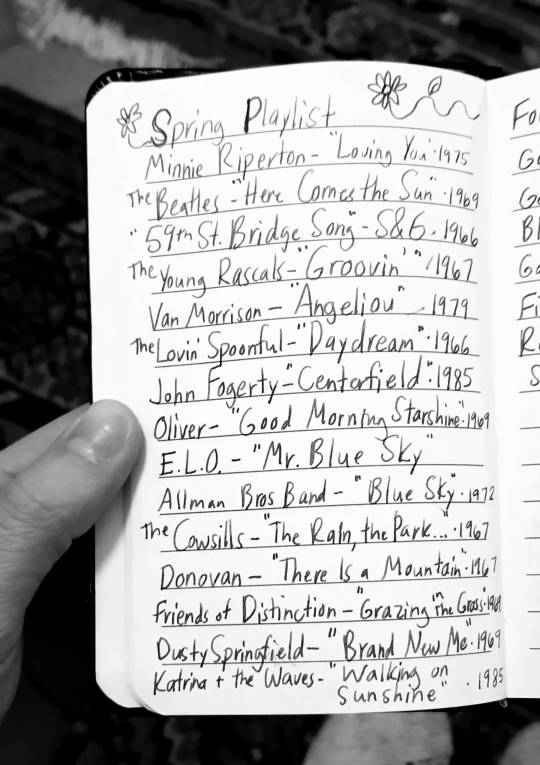 Spring Playlist
Minnie Riperton - "Loving You" · 1975
The Beatles - "Here Comes the Sun" · 1969
"59th St. Bridge Song" - S&G · 1966
The Young Rascals - "Groovin'" · 1967
Van Morrison - "Angeliou" · 1979
The Lovin' Spoonful - "Daydream" · 1966
John Fogerty - "Centerfield" · 1985
Oliver - "Good Morning Starshine" · 1969
E.L.O. - "Mr. Blue Sky"
Allman Bros Band - "Blue Sky" · 1972
The Cowsills - "The Rain, the Park..." · 1967
Donovan - "There Is a Mountain" · 1967
Friends of Distinction - "Grazing in the Grass" · 1969
Dusty Springfield - "Brand New Me" · 1969
Katrina + the Waves - "Walking on
Sunshine" · 1985